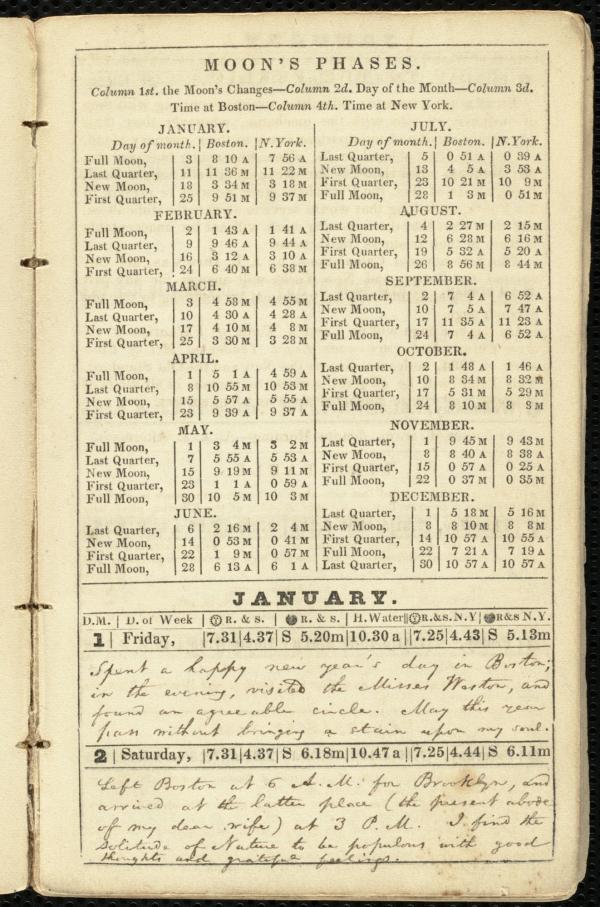 MOON'S PHASES.
Column 1st. the Moon's Changes—Column 2d. Day of the Month—Column 3d.
Time at Boston—Column 4th. Time at New York.
JANUARY.
Day of month. | Boston. | N. York.
Full Moon, | 3 | 8 10 A | 7 56 A
Last Quarter, | 11 | 11 36 M | 11 22 M
New Moon, | 18 | 3 34 M | 3 18 M
First Quarter, | 25 | 9 51 M | 9 37 M
FEBRUARY.
Full Moon, | 2 | 1 43 A | 1 41 A
Last Quarter, | 9 | 9 46 A | 9 44 A
New Moon, | 16 | 3 12 A | 3 10 A
First Quarter, | 24 | 6 40 M | 6 38 M
MARCH.
Full Moon, | 3 | 4 58 M | 4 55 M
Last Quarter, | 10 | 4 30 A | 4 28 A
New Moon, | 17 | 4 10 M | 4 8 M
First Quarter, | 25 | 3 30 M | 3 28 M
APRIL.
Full Moon, | 1 | 5 1 A | 4 59 A
Last Quarter, | 8 | 10 55 M | 10 53 M
New Moon, | 15 | 5 57 A | 5 55 A
First Quarter, | 23 | 9 39 A | 9 37 A
MAY.
Full Moon, | 1 | 3 4 M | 3 2 M
Last Quarter, | 7 | 5 55 A | 5 53 A
New Moon, | 15 | 9 19 M | 9 11 M
First Quarter, | 23 | 1 1 A | 0 59 A
Full Moon, | 30 | 10 5 M | 10 3 M
JUNE.
Last Quarter, | 6 | 2 16 M | 2 4 M
New Moon, | 14 | 0 53 M | 0 41 M
First Quarter, | 22 | 1 9 M | 0 57 M
Full Moon, | 28 | 6 13 A | 6 1 A
JULY.
Day of month. | Boston. | N. York.
Last Quarter, | 5 | 0 51 A | 0 39 A
New Moon, | 13 | 4 5 A | 3 53 A
First Quarter, | 23 | 10 21 M | 10 9 M
Full Moon, | 28 | 1 3 M | 0 51 M
AUGUST.
Last Quarter, | 4 | 2 27 M | 2 15 M
New Moon, | 12 | 6 28 M | 6 16 M
First Quarter, | 19 | 5 32 A | 5 20 A
Full Moon, | 26 | 8 56 M | 8 44 M
SEPTEMBER.
Last Quarter, | 2 | 7 4 A | 6 52 A
New Moon, | 10 | 7 5 A | 7 47 A
First Quarter, | 17 | 11 35 A | 11 23 A
Full Moon, | 24 | 7 4 A | 6 52 A
OCTOBER.
Last Quarter, | 2 | 1 48 A | 1 46 A
New Moon, | 10 | 8 34 M | 8 32 M
First Quarter, | 17 | 5 31 M | 5 29 M
Full Moon, | 24 | 8 10 M | 8 8 M
NOVEMBER.
Last Quarter, | 1 | 9 45 M | 9 43 M
New Moon, | 8 | 8 40 A | 8 38 A
First Quarter, | 15 | 0 57 A | 0 25 A
Full Moon, | 22 | 0 37 M | 0 35 M
DECEMBER.
Last Quarter, | 1 | 5 18 M | 5 16 M
New Moon, | 8 | 8 10 M | 8 8 M
First Quarter, | 14 | 10 57 A | 10 55 A
Full Moon, | 22 | 7 21 A | 7 19 A
Last Quarter, | 30 | 10 57 A | 10 57 A
JANUARY.
D.M. | D. of Week | R. & s. | R. & s. | H. Water || R. & s. N.Y | R&s N.Y.
1 | Friday, | 7.31 | 4.37 | S 5.20m | 10.30 a || 7.25 | 4.43 | S 5.13m
Spent a happy new year's day in Boston;
in the evening, visited the Misses Weston, and
found an agreeable circle. May this year
pass without bringing a stain upon my soul.
2 | Saturday, | 7.31 | 4.37 | S 6.18m | 10.47 a || 7.25 | 4.44 | S 6.11m
Left Boston at 6 A. M. for Brooklyn, and
arrived at the latter place (the present abode
of my dear wife) at 3 P. M. I find the
solitude of Nature to be populous with good
thoughts and grateful feelings.